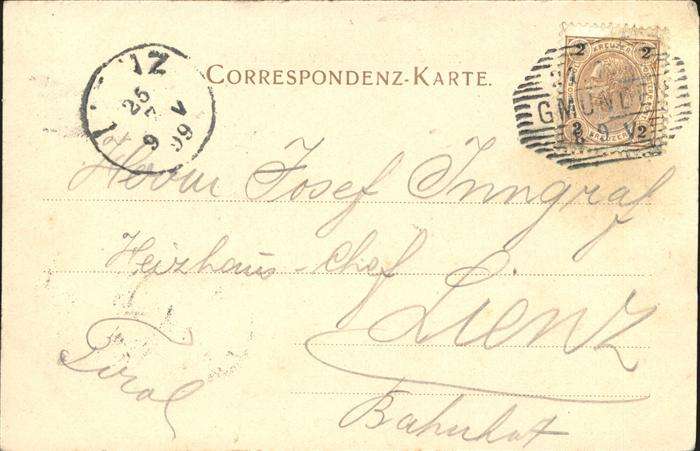 CORRESPONDENZ-KARTE.
2 KREUZER 2
GMUNDEN
2 KREUZER 2
25
9 V
99
Herrn Josef Inngraf
Heizhaus-Chef
Lienz
Tirol
Bahnhof